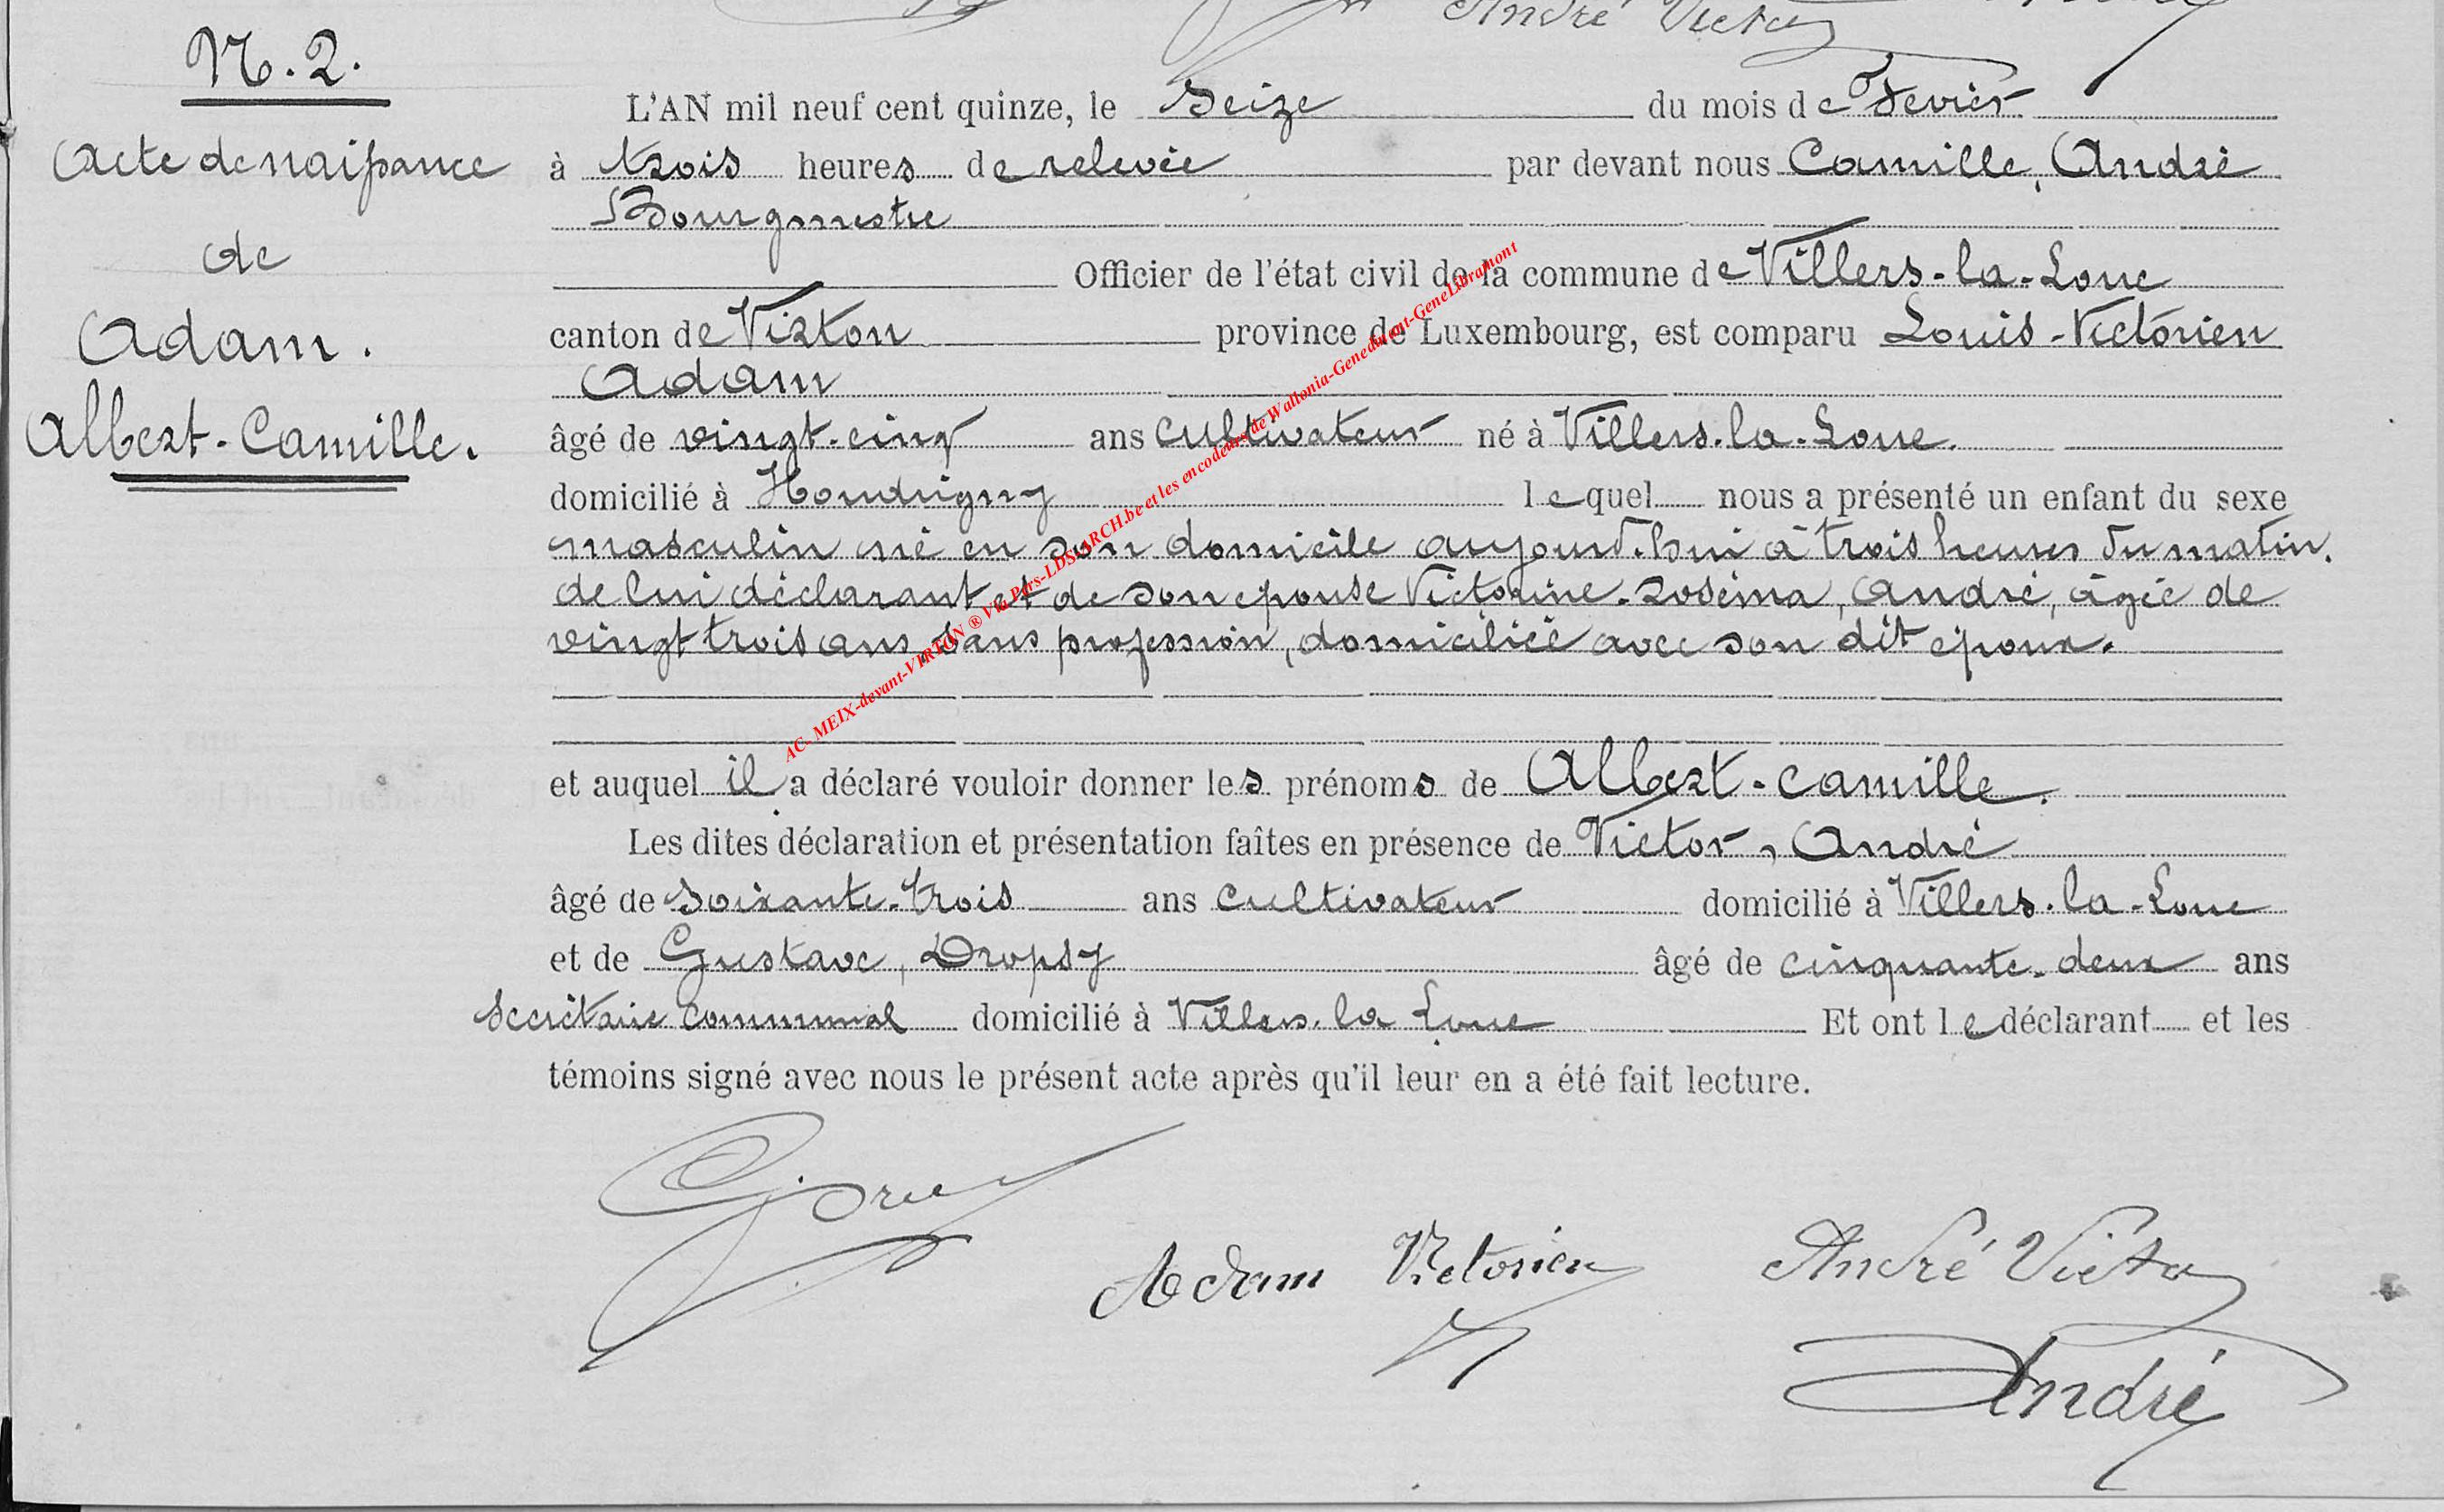 André Victor
N. 2.
Acte de naissance
de
Adam.
Albert-Camille.
L'AN mil neuf cent quinze, le Seize du mois de Fevrier
à trois heures de relevée par devant nous Camille, André
Bourgmestre
Officier de l'état civil de la commune de Villers-la-Loue
canton de Virton province de Luxembourg, est comparu Louis-Victorien
Adam
âgé de vingt-cinq ans cultivateur né à Villers-la-Loue.
domicilié à Houdrigny lequel nous a présenté un enfant du sexe
masculin né en son domicile aujourd'hui à trois heures du matin.
de lui déclarant et de son epouse Victorine-Zoséma, André, âgée de
vingt trois ans, sans profession, domiciliée avec son dit époux.
et auquel il a déclaré vouloir donner les prénoms de Albert-Camille.
Les dites déclaration et présentation faîtes en présence de Victor, André
âgé de soixante-trois ans cultivateur domicilié à Villers-la-Loue
et de Gustave, Dropsy âgé de cinquante-deux ans
secrétaire communal domicilié à Villers-la Loue Et ont le déclarant et les
témoins signé avec nous le présent acte après qu'il leur en a été fait lecture.
Adam Victorien
André Victor
André
AC- MEIX-devant-VIRTON ® Via Pars-LDS/ARCH.be et les encodeurs de Wallonia-Genedinant-GeneLibramont